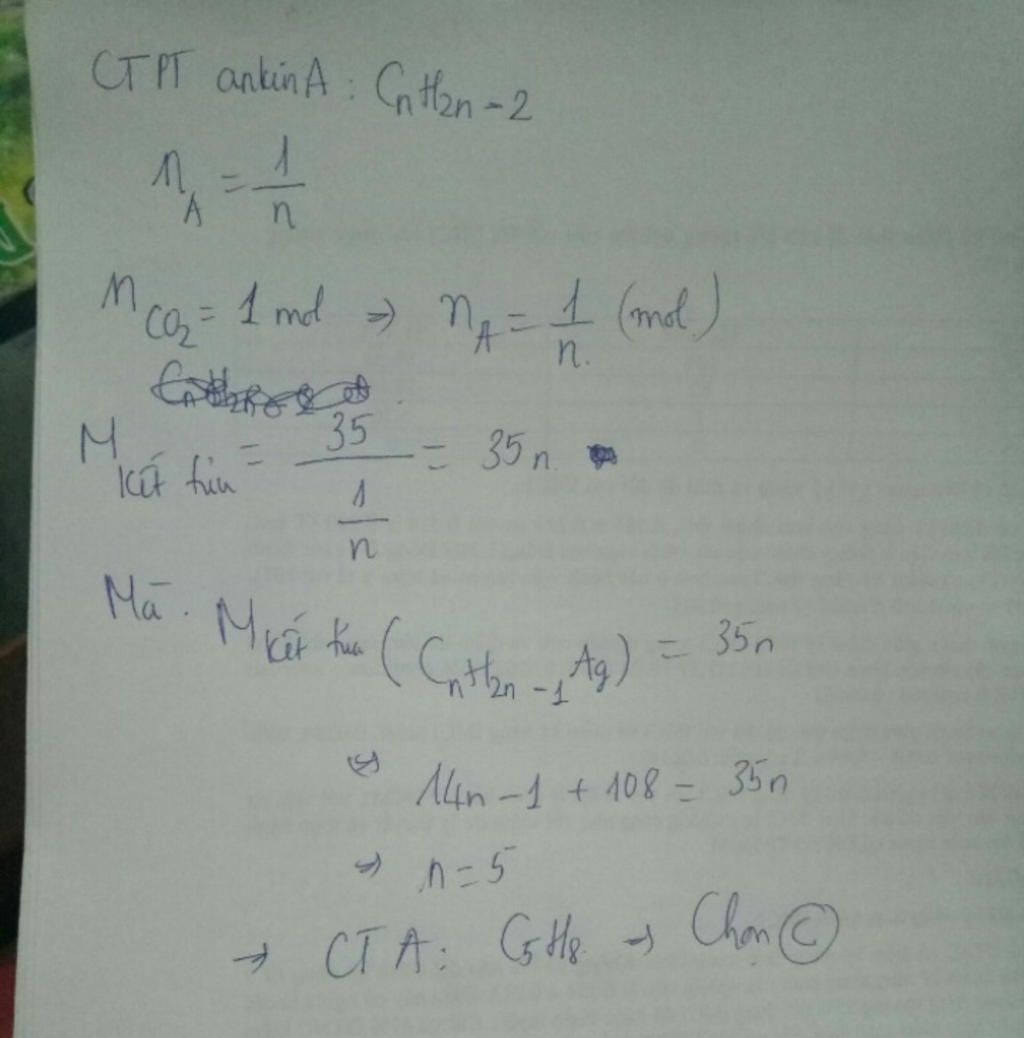 CTPT ankin A : CnH2n-2
nA = 1/n
nCO2 = 1 mol => nA = 1/n (mol)
M kết tủa = 35/(1/n) = 35n
Mà M kết tủa (CnH2n-1Ag) = 35n
<=> 14n - 1 + 108 = 35n
=> n = 5
→ CTA : C5H8 → Chọn C